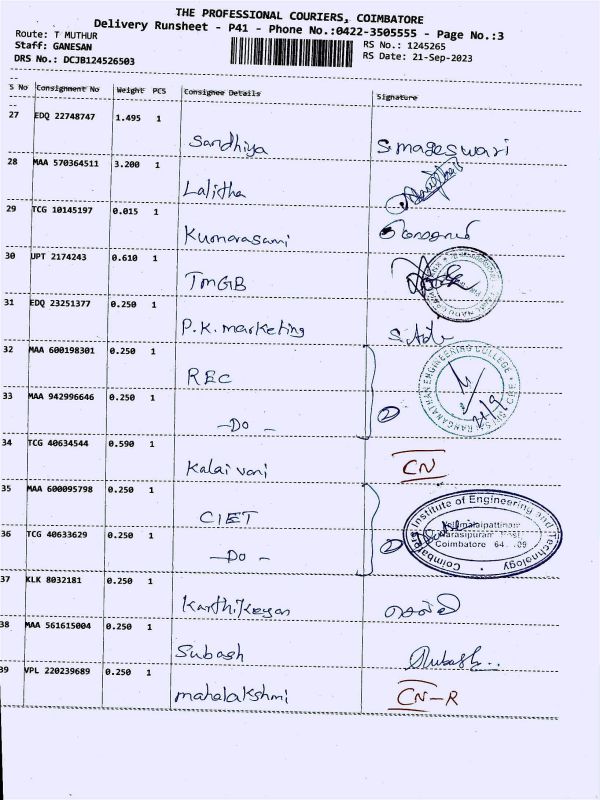 THE PROFESSIONAL COURIERS, COIMBATORE
Delivery Runsheet - P41 - Phone No.:0422-3505555 - Page No.:3
Route: T MUTHUR
RS No.: 1245265
Staff: GANESAN
RS Date: 21-Sep-2023
DRS No.: DCJB124526503
S No Consignment No Weight PCS Consignee Details Signature
27 EDQ 22748747 1.495 1
Sandhiya S. mageswari
28 MAA 570364511 3.200 1
Lalitha
29 TCG 10145197 0.015 1
Kumarasami
30 UPT 2174243 0.610 1
TMGB
31 EDQ 23251377 0.250 1
P.K. marketing
32 MAA 600198301 0.250 1
REC
SRI RANGANATHAN ENGINEERING COLLEGE
33 MAA 942996646 0.250 1
-Do- 2 21/9
34 TCG 40634544 0.590 1
Kalai vani CN
35 MAA 600095798 0.250 1
CIET
Coimbatore Institute of Engineering and Technology
Vellimalaipattinam
Narasipuram Post
Coimbatore 64 09
36 TCG 40633629 0.250 1
-Do- 2
37 KLK 8032181 0.250 1
Karthikeyan
38 MAA 561615004 0.250 1
Subash Subash..
39 VPL 220239689 0.250 1
mahalakshmi CN-R